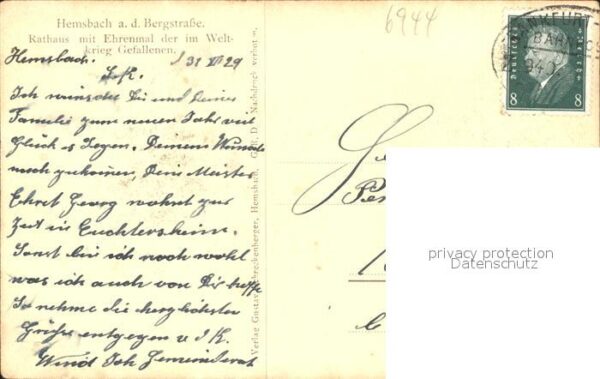 Hemsbach a. d. Bergstraße.
Rathaus mit Ehrenmal der im Welt-
krieg Gefallenen.
6944
Hemsbach. 31 XII 29
I. K.
Ich wünsche Dir und Deiner
Familie zum neuen Jahr viel
Glück u Segen. Deinem Wunsche
nach zukommen, Dein Meister
Ehret Georg wohnt zur
Zeit in
Sonst bin ich noch wohl
was ich auch von Dir hoffe
So nehme die herzlichsten
Grüße entgegen v I K.
Verlag Gustav Schreckenberger, Hemsbach. Nachdruck verboten.
FRANKFURT
BAHNPOST
Deutsches Reich
8 8
privacy protection
Datenschutz